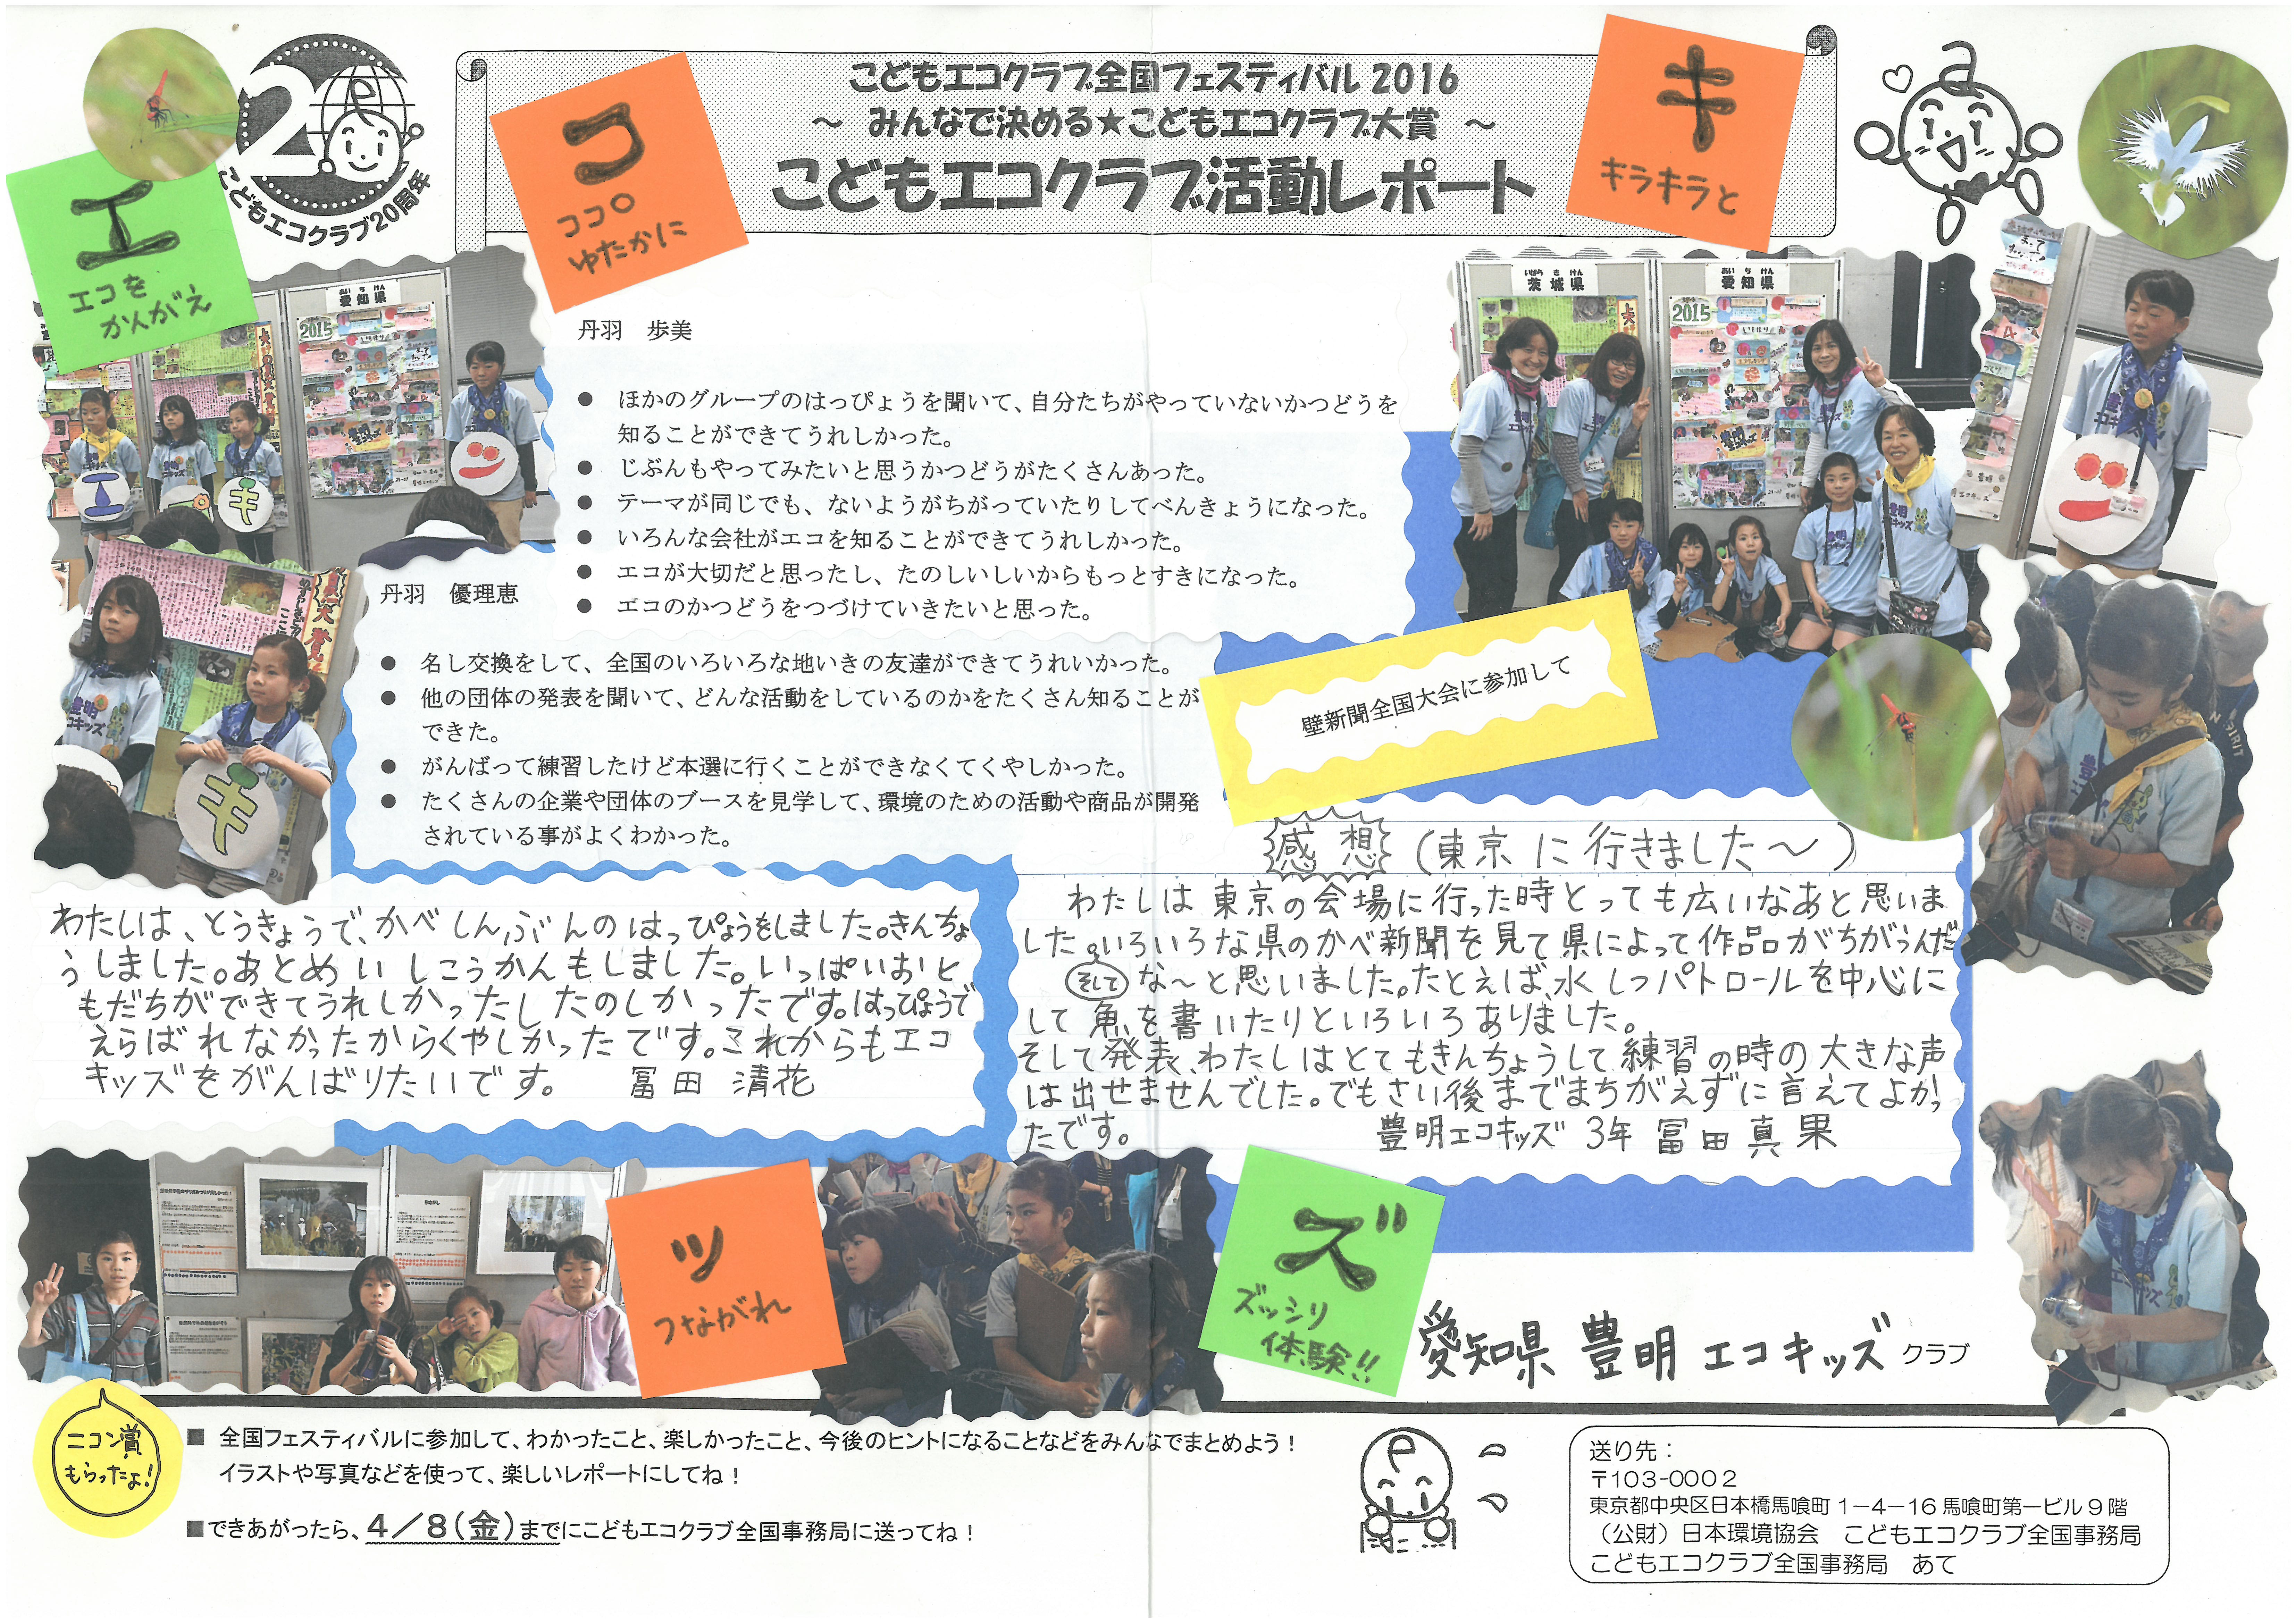 こどもエコクラブ20周年
こどもエコクラブ全国フェスティバル 2016
～ みんなで決める★こどもエコクラブ大賞 ～
こどもエコクラブ活動レポート
エ
エを
かんがえ
コ
ココロ
ゆたかに
キ
キラキラと
あいちけん
愛知県
2015
いばらきけん
茨城県
あいちけん
愛知県
2015
丹羽　歩美
● ほかのグループのはっぴょうを聞いて、自分たちがやっていないかつどうを
知ることができてうれしかった。
● じぶんもやってみたいと思うかつどうがたくさんあった。
● テーマが同じでも、ないようがちがっていたりしてべんきょうになった。
● いろんな会社がエコを知ることができてうれしかった。
● エコが大切だと思ったし、たのしいしいからもっとすきになった。
● エコのかつどうをつづけていきたいと思った。
丹羽　優理恵
● 名し交換をして、全国のいろいろな地いきの友達ができてうれいかった。
● 他の団体の発表を聞いて、どんな活動をしているのかをたくさん知ることが
できた。
● がんばって練習したけど本選に行くことができなくてくやしかった。
● たくさんの企業や団体のブースを見学して、環境のための活動や商品が開発
されている事がよくわかった。
壁新聞全国大会に参加して
わたしは、とうきょうで、かべしんぶんのはっぴょうをしました。きんちょ
うしました。あとめいしこうかんもしました。いっぱいおと
もだちができてうれしかったしたのしかったです。はっぴょうで
えらばれなかったからくやしかったです。これからもエコ
キッズをがんばりたいです。　冨田 清花
感想（東京に行きました～）
わたしは東京の会場に行った時とっても広いなあと思いま
した。いろいろな県のかべ新聞を見て県によって作品がちがうんだ
そして
な～と思いました。たとえば、水しつパトロールを中心に
して魚を書いたりといろいろありました。
そして発表、わたしはとてもきんちょうして練習の時の大きな声
は出せませんでした。でもさい後までまちがえずに言えてよかっ
たです。　豊明エコキッズ 3年 冨田 真果
ツ
つながれ
ズ
ズッシリ
体験!!
愛知県 豊明 エコキッズ クラブ
ニコン賞
もらったよ!
■ 全国フェスティバルに参加して、わかったこと、楽しかったこと、今後のヒントになることなどをみんなでまとめよう！
イラストや写真などを使って、楽しいレポートにしてね！
■できあがったら、4／8（金）までにこどもエコクラブ全国事務局に送ってね！
送り先：
〒103-0002
東京都中央区日本橋馬喰町 1－4－16 馬喰町第一ビル 9 階
（公財）日本環境協会　こどもエコクラブ全国事務局
こどもエコクラブ全国事務局　あて